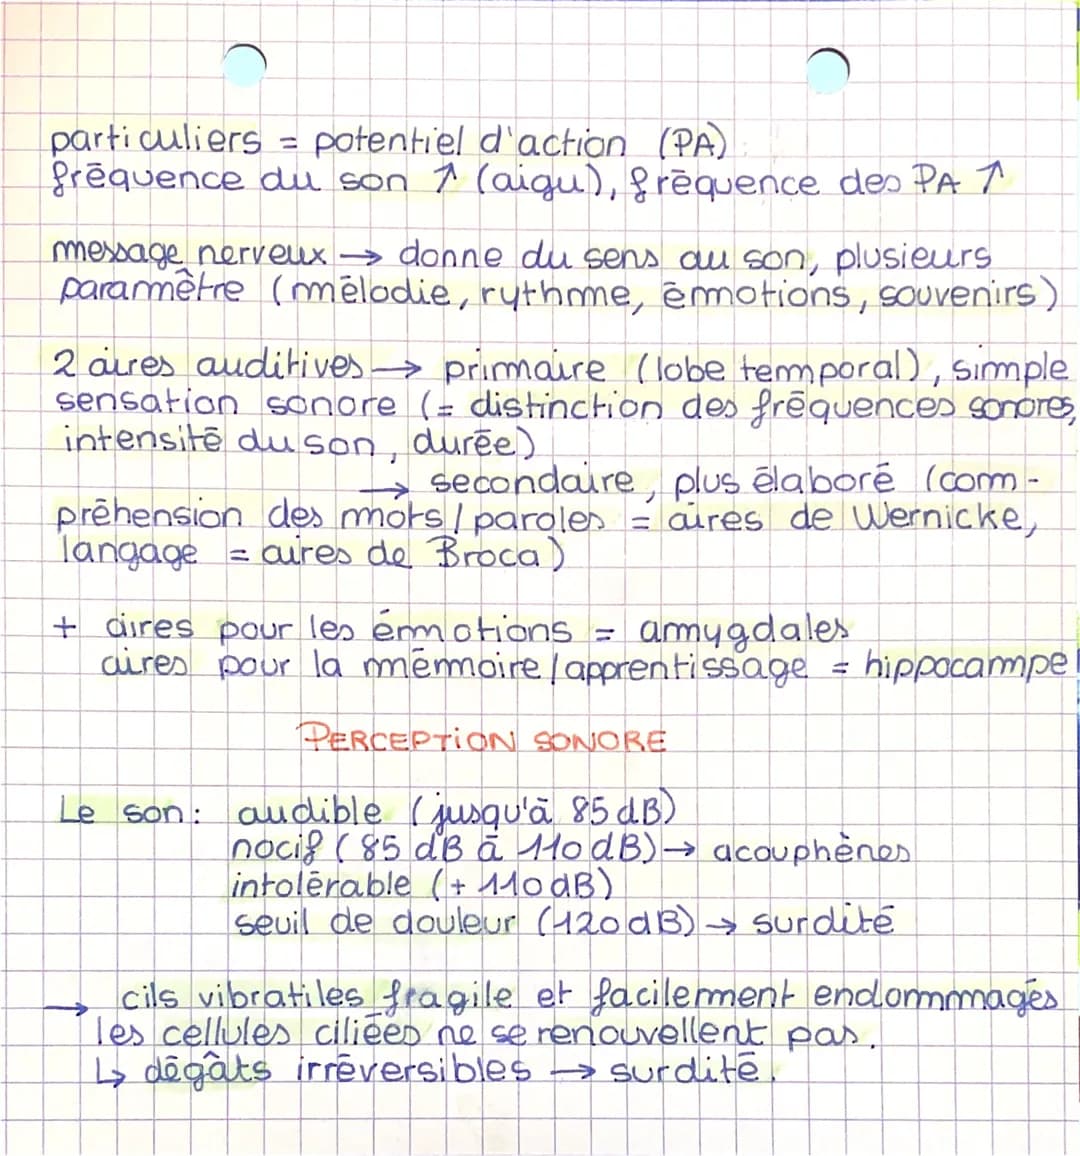 particuliers = potentiel d'action (PA)
fréquence du son ↑ (aigu), fréquence des PA ↑
message nerveux → donne du sens au son, plusieurs
paramètre (mélodie, rythme, émotions, souvenirs)
2 aires auditives → primaire (lobe temporal), simple
sensation sonore (= distinction des fréquences sonores,
intensité du son, durée)
→ secondaire, plus élaboré (com-
préhension des mots/paroles = aires de Wernicke,
langage = aires de Broca)
+ aires pour les émotions = amygdales
aires pour la mémoire/apprentissage = hippocampe
PERCEPTION SONORE
Le son: audible (jusqu'à 85 dB)
nocif (85 dB à 110 dB) → acouphènes
intolérable (+ 110 dB)
seuil de douleur (120 dB) → surdité
→ cils vibratiles fragile et facilement endommagés
les cellules ciliées ne se renouvellent pas.
↳ dégâts irréversibles → surdité.